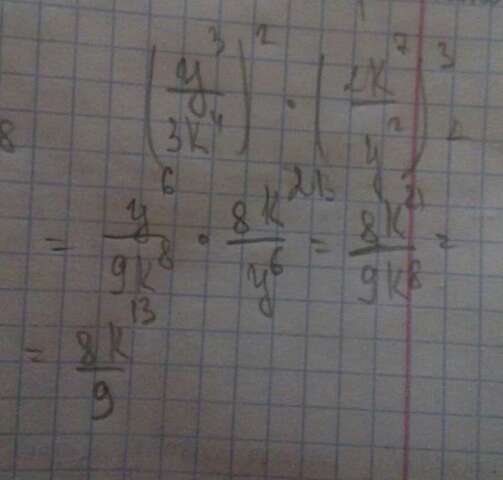 (y³/3k⁴)² · (2k⁷/y²)³ =
= y⁶/9k⁸ · 8k²¹/y⁶ = 8k²¹/9k⁸ =
= 8k¹³/9